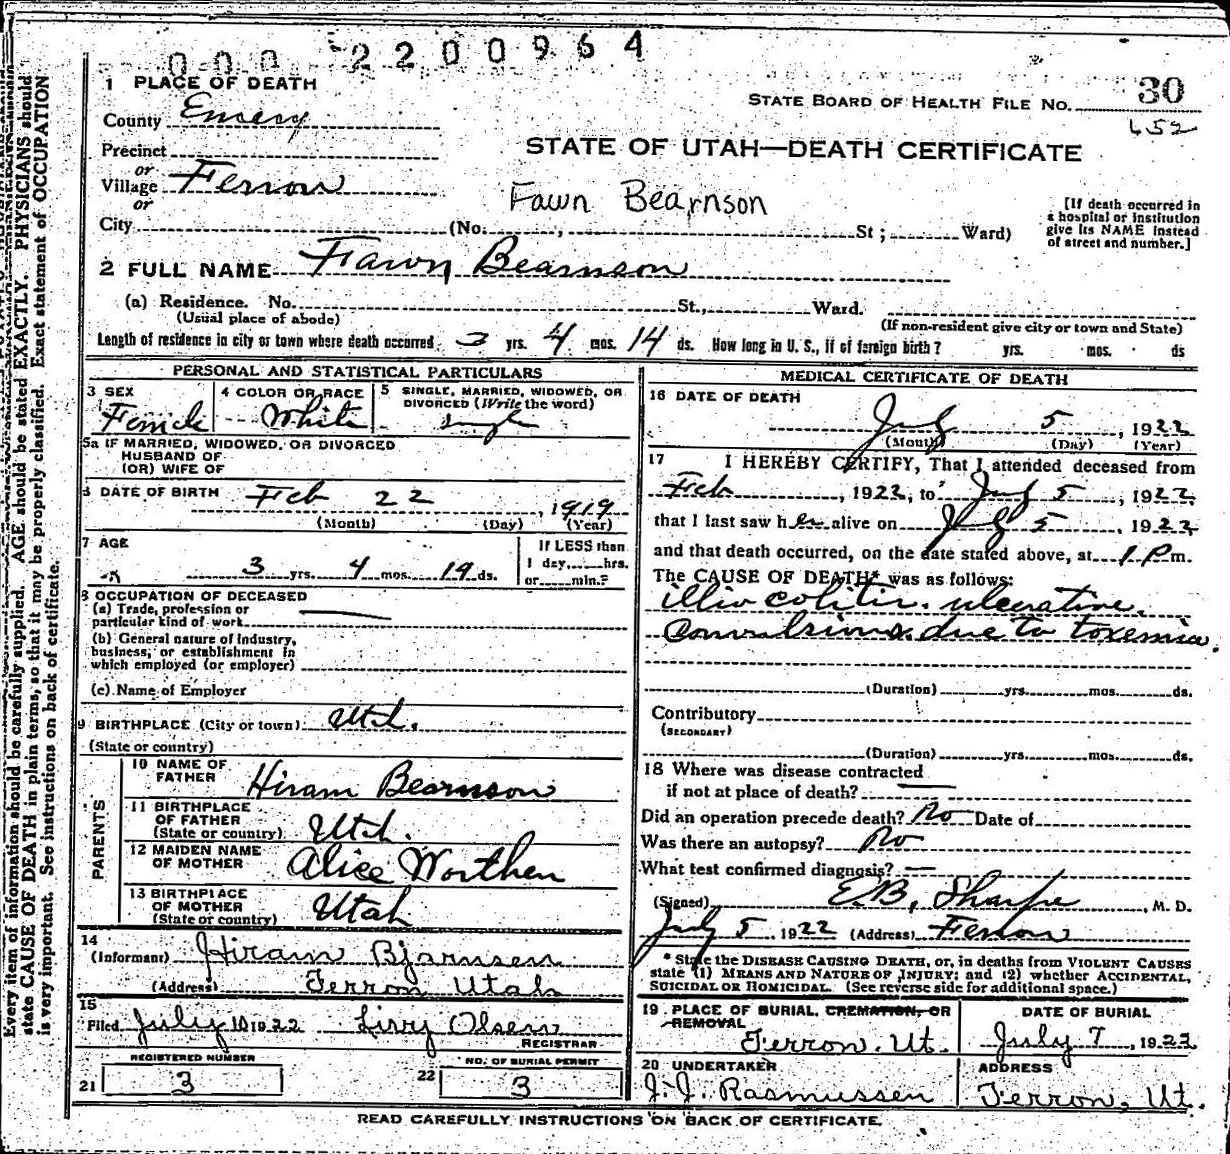 000 2200964
1 PLACE OF DEATH
STATE BOARD OF HEALTH FILE NO. 30
452
County Emery
STATE OF UTAH—DEATH CERTIFICATE
Precinct
or
Village Ferron
or
Fawn Bearnson
[If death occurred in
a hospital or institution
give its NAME instead
of street and number.]
City (No. , St ; Ward)
2 FULL NAME Fawn Bearnson
(a) Residence. No. St., Ward.
(Usual place of abode) (If non-resident give city or town and State)
Length of residence in city or town where death occurred 3 yrs. 4 mos. 14 ds. How long in U. S., if of foreign birth? yrs. mos. ds
PERSONAL AND STATISTICAL PARTICULARS
3 SEX
Female
4 COLOR OR RACE
White
5 SINGLE, MARRIED, WIDOWED, OR
DIVORCED (Write the word)
single
5a IF MARRIED, WIDOWED, OR DIVORCED
HUSBAND OF
(OR) WIFE OF
6 DATE OF BIRTH Feb 22, 1919
(Month) (Day) (Year)
7 AGE
3 yrs. 4 mos. 14 ds.
If LESS than
1 day, hrs.
or min.?
8 OCCUPATION OF DECEASED
(a) Trade, profession or
particular kind of work
(b) General nature of industry,
business, or establishment in
which employed (or employer)
(c) Name of Employer
9 BIRTHPLACE (City or town) Utah.
(State or country)
PARENTS
10 NAME OF
FATHER Hiram Bearnson
11 BIRTHPLACE
OF FATHER
(State or country) Utah.
12 MAIDEN NAME
OF MOTHER Alice Worthen
13 BIRTHPLACE
OF MOTHER
(State or country) Utah
14
(Informant) Hiram Bjarnsen
(Address) Ferron Utah
15
Filed July 10 1922 Olsen
REGISTRAR
REGISTERED NUMBER
21 3
NO. OF BURIAL PERMIT
22 3
MEDICAL CERTIFICATE OF DEATH
16 DATE OF DEATH
July 5, 1922
(Month) (Day) (Year)
17 I HEREBY CERTIFY, That I attended deceased from
Feb , 1922, to July 5, 1922,
that I last saw her alive on July 5 1922
and that death occurred, on the date stated above, at 1 P m.
The CAUSE OF DEATH* was as follows:
illio colitis. ulcerative.
Convulsions. due to toxemia.
(Duration) yrs. mos. ds.
Contributory
(SECONDARY)
(Duration) yrs. mos. ds.
18 Where was disease contracted
if not at place of death?
Did an operation precede death? No Date of
Was there an autopsy? No
What test confirmed diagnosis? —
(Signed) E.B. Sharpe, M. D.
July 5, 1922 (Address) Ferron
* State the DISEASE CAUSING DEATH, or, in deaths from VIOLENT CAUSES
state (1) MEANS AND NATURE OF INJURY; and (2) whether ACCIDENTAL,
SUICIDAL OR HOMICIDAL. (See reverse side for additional space.)
19 PLACE OF BURIAL, CREMATION, OR
REMOVAL
Ferron. Ut.
DATE OF BURIAL
July 7, 1922
20 UNDERTAKER
J. J. Rasmussen
ADDRESS
Ferron, Ut.
READ CAREFULLY INSTRUCTIONS ON BACK OF CERTIFICATE.
Every item of information should be carefully supplied. AGE should be stated EXACTLY. PHYSICIANS should
state CAUSE OF DEATH in plain terms, so that it may be properly classified. Exact statement of OCCUPATION
is very important. See instructions on back of certificate.